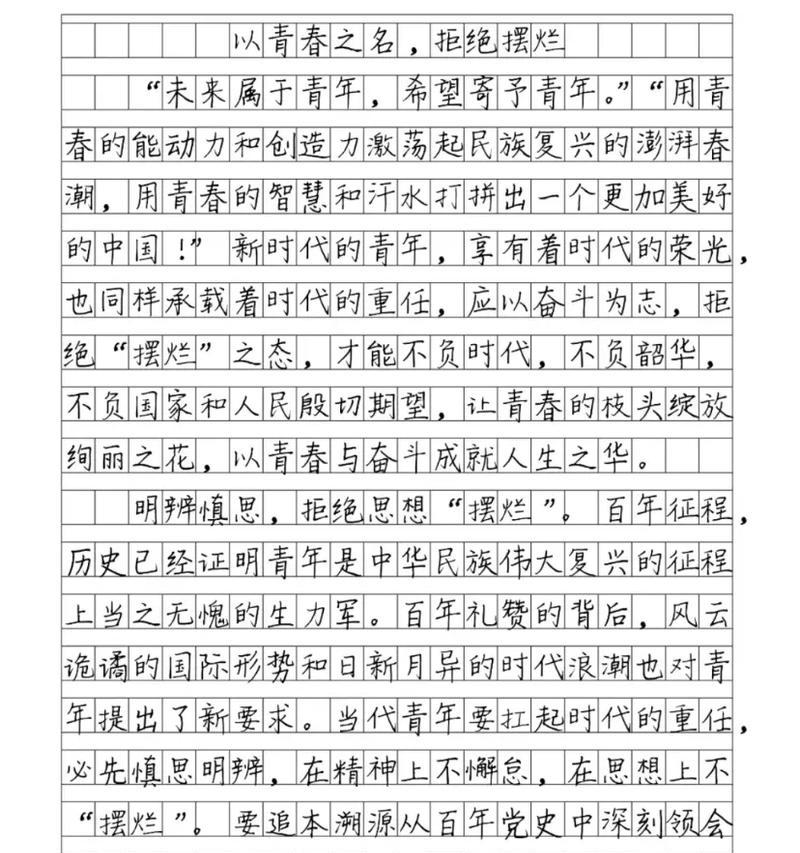 以青春之名，拒绝摆烂
“未来属于青年，希望寄予青年。”“用青
春的能动力和创造力激荡起民族复兴的澎湃春
潮，用青春的智慧和汗水打拼出一个更加美好
的中国！”新时代的青年，享有着时代的荣光，
也同样承载着时代的重任，应以奋斗为志，拒
绝“摆烂”之态，才能不负时代，不负韶华，
不负国家和人民殷切期望，让青春的枝头绽放
绚丽之花，以青春与奋斗成就人生之华。
明辨慎思，拒绝思想“摆烂”。百年征程，
历史已经证明青年是中华民族伟大复兴的征程
上当之无愧的生力军。百年礼赞的背后，风云
诡谲的国际形势和日新月异的时代浪潮也对青
年提出了新要求。当代青年要扛起时代的重任，
必先慎思明辨，在精神上不懈怠，在思想上不
“摆烂”。要追本溯源从百年党史中深刻领会